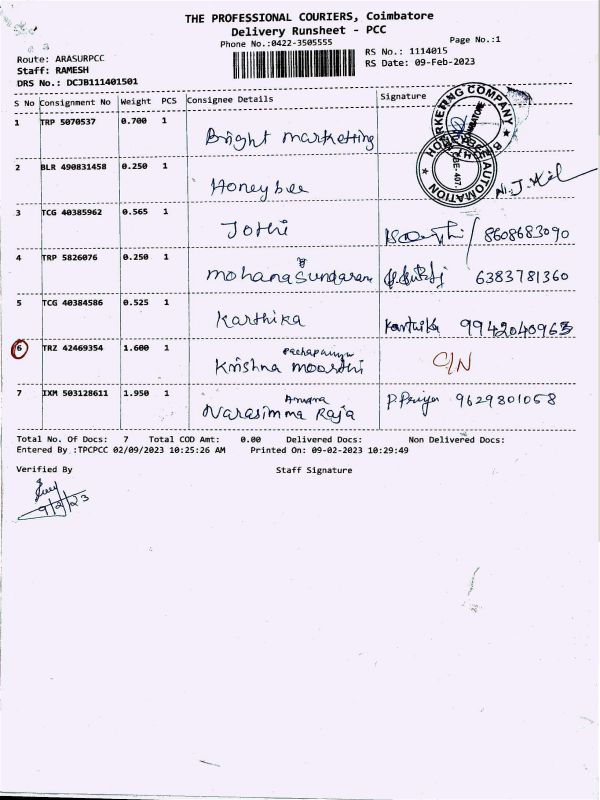 THE PROFESSIONAL COURIERS, Coimbatore
Delivery Runsheet - PCC
Phone No.:0422-3505555
Page No.:1
Route: ARASURPCC
RS No.: 1114015
Staff: RAMESH
RS Date: 09-Feb-2023
DRS No.: DCJB111401501
S No Consignment No Weight PCS Consignee Details Signature
1 TRP 5070537 0.700 1 Bright marketting
2 BLR 490831458 0.250 1 Honeybee
3 TCG 40385962 0.565 1 Jothi 8608683090
4 TRP 5826076 0.250 1 mohanasundaram 6383781360
5 TCG 40384586 0.525 1 Karthika Karthika 9942040963
6 TRZ 42469354 1.600 1 Krishna moorthi C/N
7 IXM 503128611 1.950 1 Narasimma Raja P.Priya 9629801058
Total No. Of Docs: 7 Total COD Amt: 0.00 Delivered Docs: Non Delivered Docs:
Entered By :TPCPCC 02/09/2023 10:25:26 AM Printed On: 09-02-2023 10:29:49
Verified By Staff Signature
9/2/23